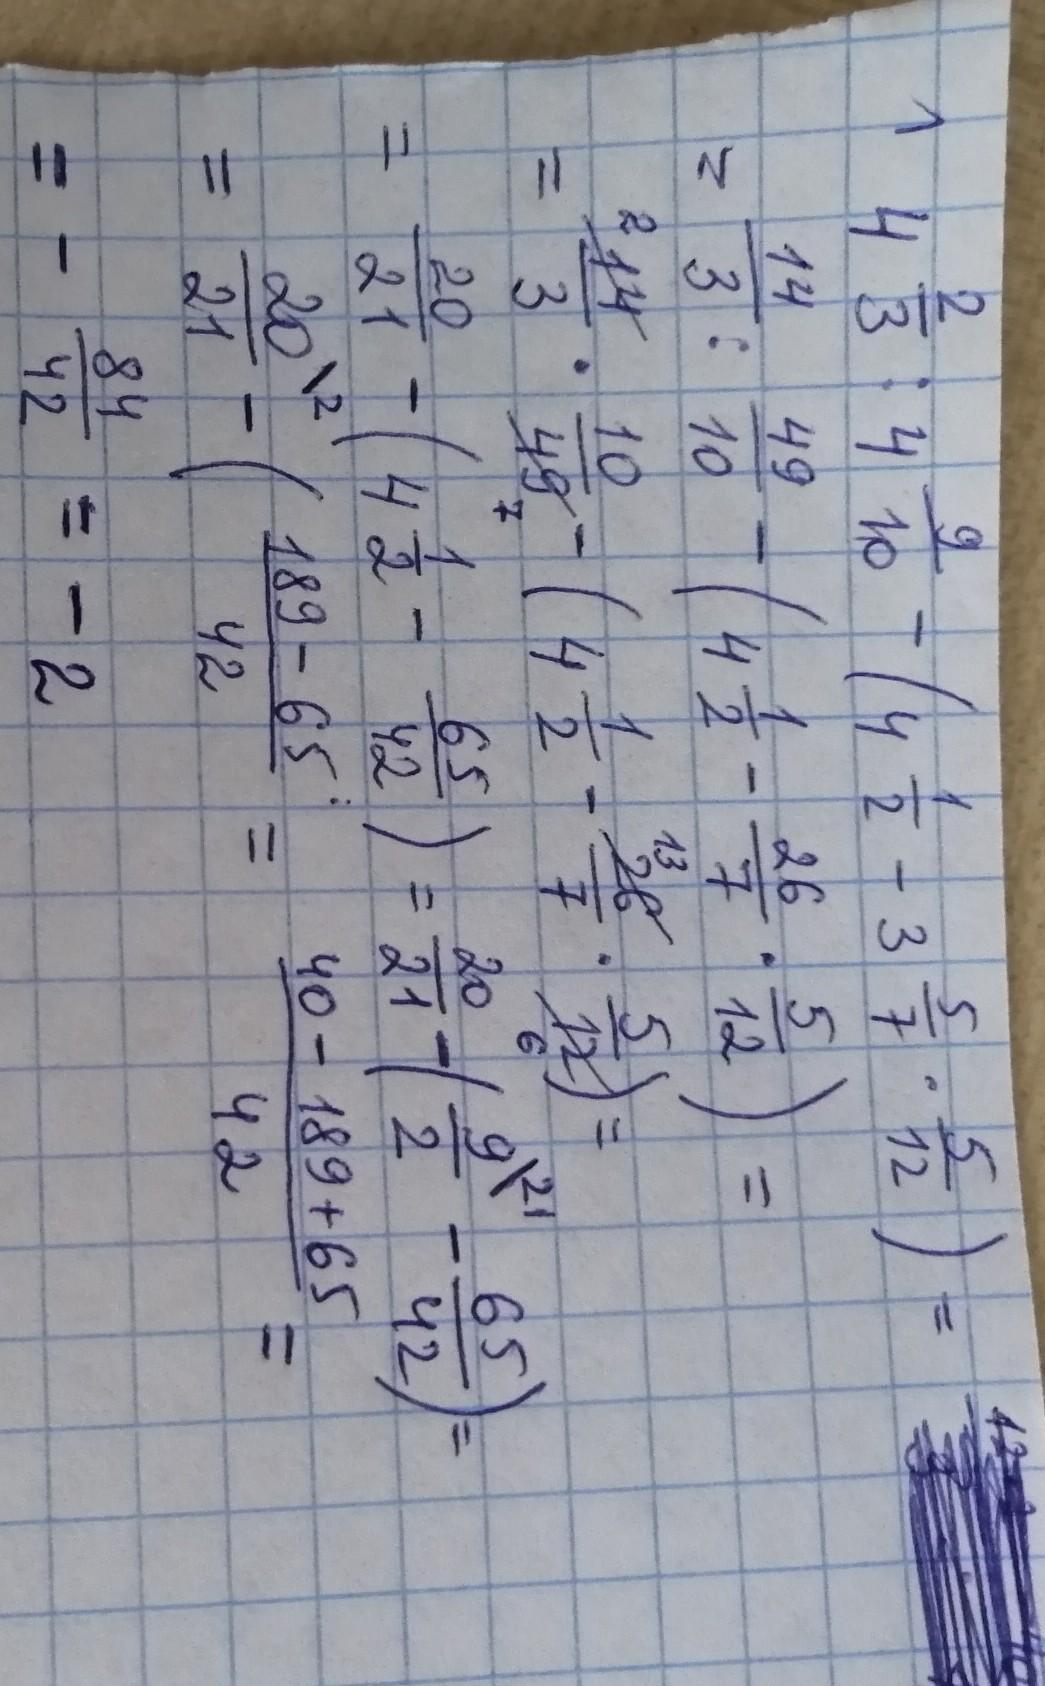 1 4 2/3 : 4 9/10 - (4 1/2 - 3 5/7 · 5/12) =
= 14/3 : 49/10 - (4 1/2 - 26/7 · 5/12) =
= 14/3 2 · 10/49 7 - (4 1/2 - 26/7 13 · 5/12 6) =
= 20/21 - (4 1/2 - 65/42) = 20/21 - (9/2 \21 - 65/42) =
= 20/21 \2 - (189-65/42 = 40-189+65/42 =
= - 84/42 = -2